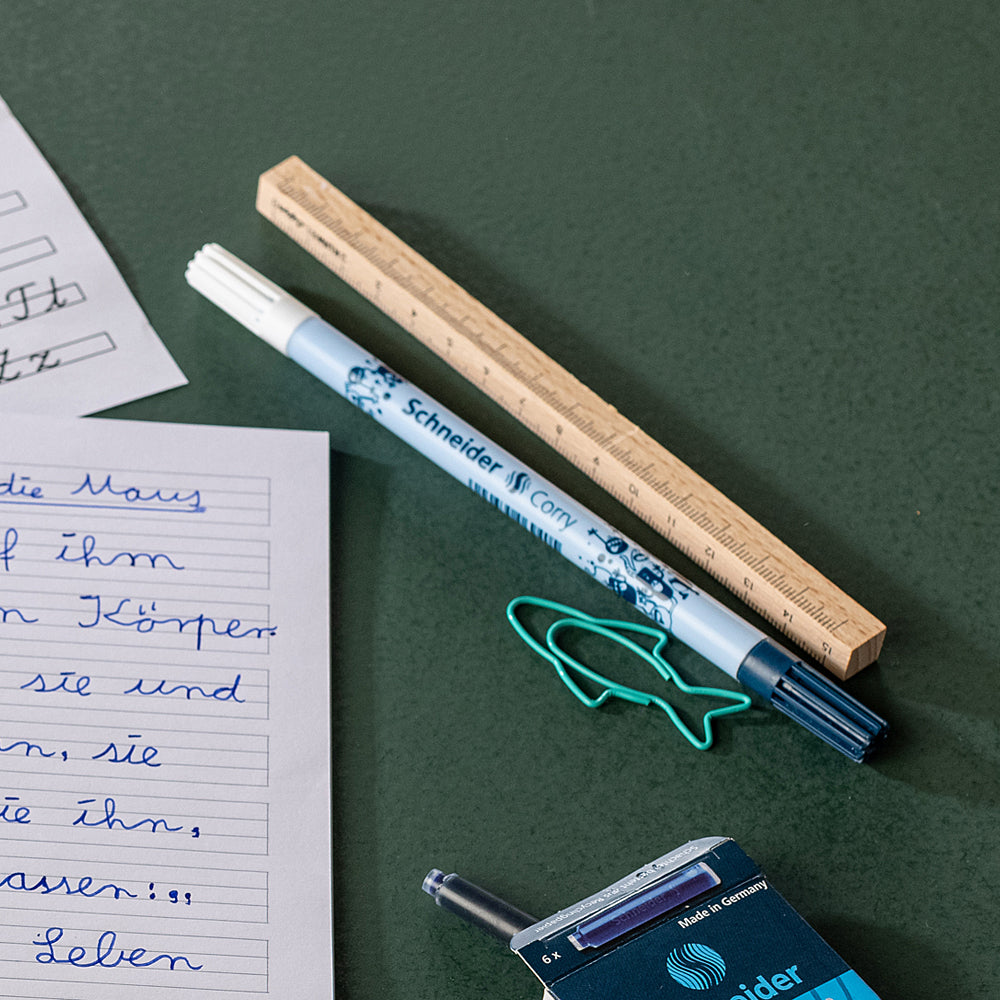 Tt
Zz
die Maus
f ihm
n Körper.
sie und
n, sie
ie ihn,
assen:„
Leben
Schneider Corry
2
9
10
11
12
13
14
15
6 x
Made in Germany
Schneider
neider